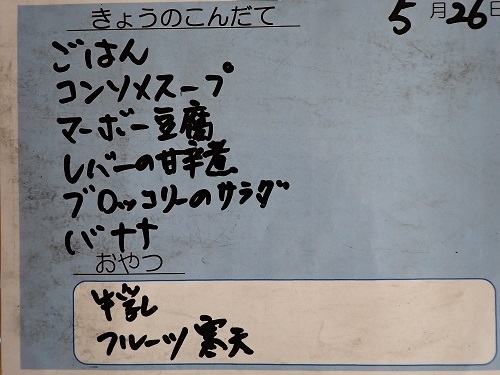 きょうのこんだて 5月26日
ごはん
コンソメスープ
マーボー豆腐
レバーの甘辛煮
ブロッコリーのサラダ
バナナ
おやつ
牛乳
フルーツ寒天